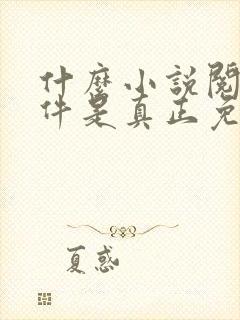 什麼小說閱
件是真正免
夏惑